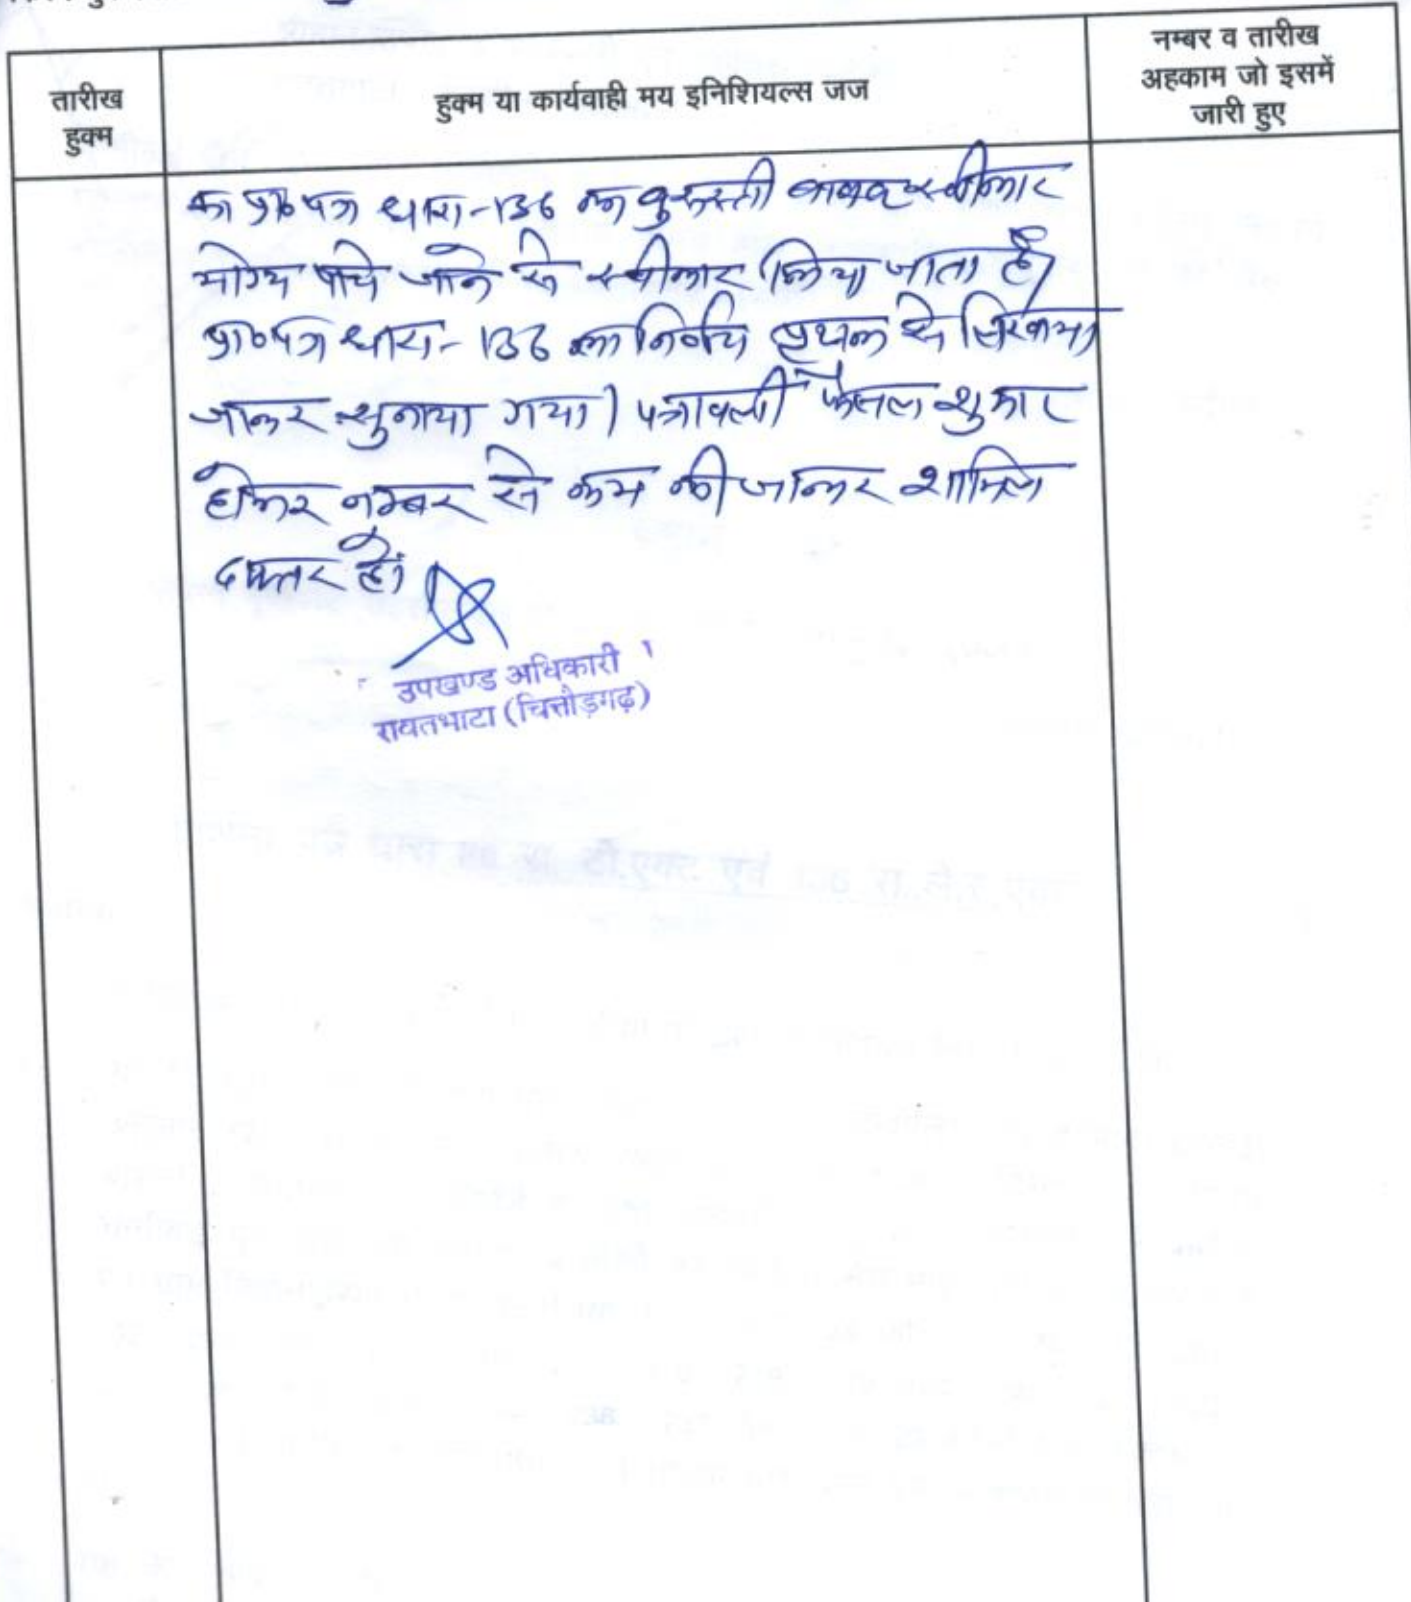 तारीख
हुक्म
हुक्म या कार्यवाही मय इनिशियल्स जज
नम्बर व तारीख
अहकाम जो इसमें
जारी हुए
का प्रा० पत्र धारा-136 का दुरुस्ती बाबत स्वीकार
योग्य पाये जाने से स्वीकार किया जाता है।
प्रा० पत्र धारा-136 का निर्णय पृथक से लिखाया
जाकर सुनाया गया। पत्रावली फैसल शुमार
होकर नम्बर से कम की जाकर शामिल
दफ्तर हो।
उपखण्ड अधिकारी
रावतभाटा (चित्तौड़गढ़)